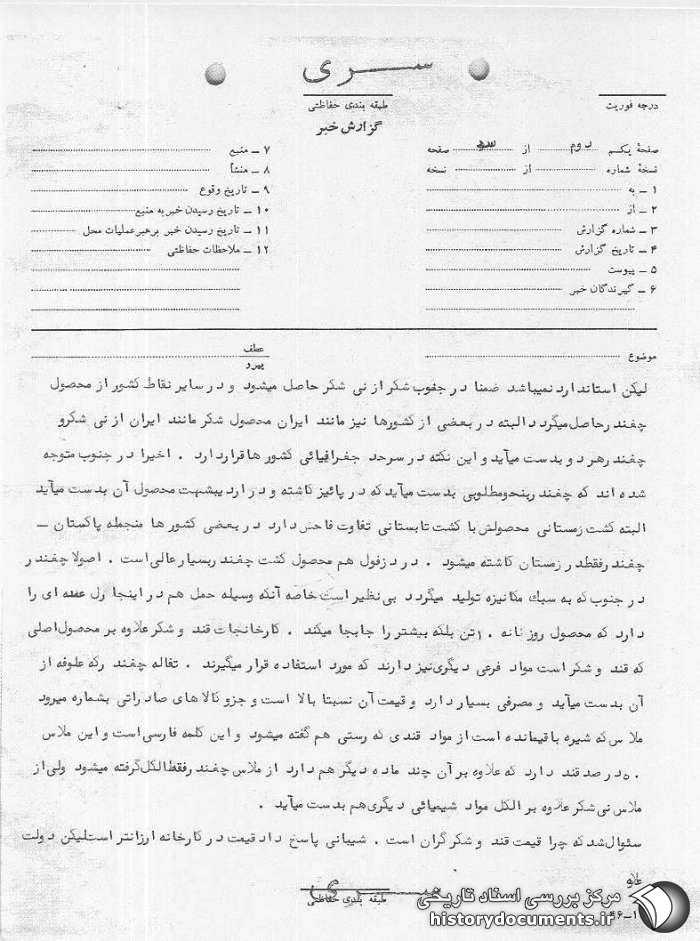 سری
درجه فوریت
طبقه بندی حفاظتی
گزارش خبر
صفحهٔ یکم دوم از سه صفحه
نسخهٔ شماره از نسخه
۱ ـ به
۲ ـ از
۳ ـ شماره گزارش
۴ ـ تاریخ گزارش
۵ ـ پیوست
۶ ـ گیرندگان خبر
۷ ـ منبع
۸ ـ منشأ
۹ ـ تاریخ وقوع
۱۰ ـ تاریخ رسیدن خبر به منبع
۱۱ ـ تاریخ رسیدن خبر برهبر عملیات محل
۱۲ ـ ملاحظات حفاظتی
موضوع
عطف
پیرو
لیکن استاندارد نمیباشد ضمنا در جنوب شکر از نی شکر حاصل میشود و در سایر نقاط کشور از محصول
چغندر حاصل میگردد البته در بعضی از کشورها نیز مانند ایران محصول شکر مانند ایران از نی شکر و
چغندر هر دو بدست میآید و این نکته در سرحد جغرافیائی کشورها قرار دارد . اخیرا در جنوب متوجه
شده اند که چغندر بنحو مطلوبی بدست میآید که در پائیز کاشته و در اردیبشهت محصول آن بدست میآید
البته کشت زمستانی محصولش با کشت تابستانی تفاوت فاحش دارد در بعضی کشورها منجطه پاکستان ـ
چغندر فقط در زمستان کاشته میشود . در دزفول هم محصول کشت چغندر بسیار عالی است . اصولا چغندر
در جنوب که به سبک مکانیزه تولید میگردد بی نظیر است خاصه آنکه وسیله حمل هم در اینجا رل عمده ای را
دارد که محصول روزنانه ۱۰ تن بلکه بیشتر را جابجا میکند . کارخانجات قند و شکر علاوه بر محصول اصلی
که قند و شکر است مواد فرعی دیگری نیز دارند که مورد استفاده قرار میگیرند . تفاله چغندر که علوفه از
آن بدست میآید و مصرفی بسیار دارد و قیمت آن نسبتا بالا است و جزو کالاهای صادراتی بشماره میرود
ملاس که شیره باقیمانده است از مواد قندی که رستی هم گفته میشود و این کلمه فارسی است و این ملاس
۵۰ درصد قند دارد که علاوه بر آن چند ماده دیگر هم دارد از ملاس چغندر فقط الکل گرفته میشود ولی از
ملاس نی شکر علاوه بر الکل مواد شیمیائی دیگری هم بدست میآید .
سئوال شد که چرا قیمت قند و شکر گران است . شیبانی پاسخ داد قیمت در کارخانه ارزانتر است لیکن دولت
علاو
سری
طبقه بندی حفاظتی
مرکز بررسی اسناد تاریخی
historydocuments.ir